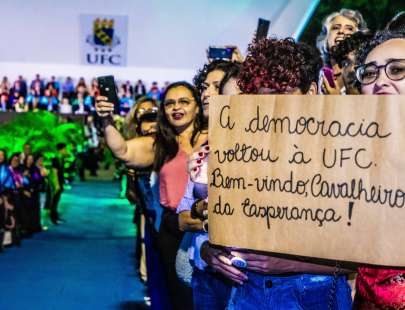 UFC
A democracia
voltou à UFC.
Bem-vindo, Cavalheiro
da Esperança!